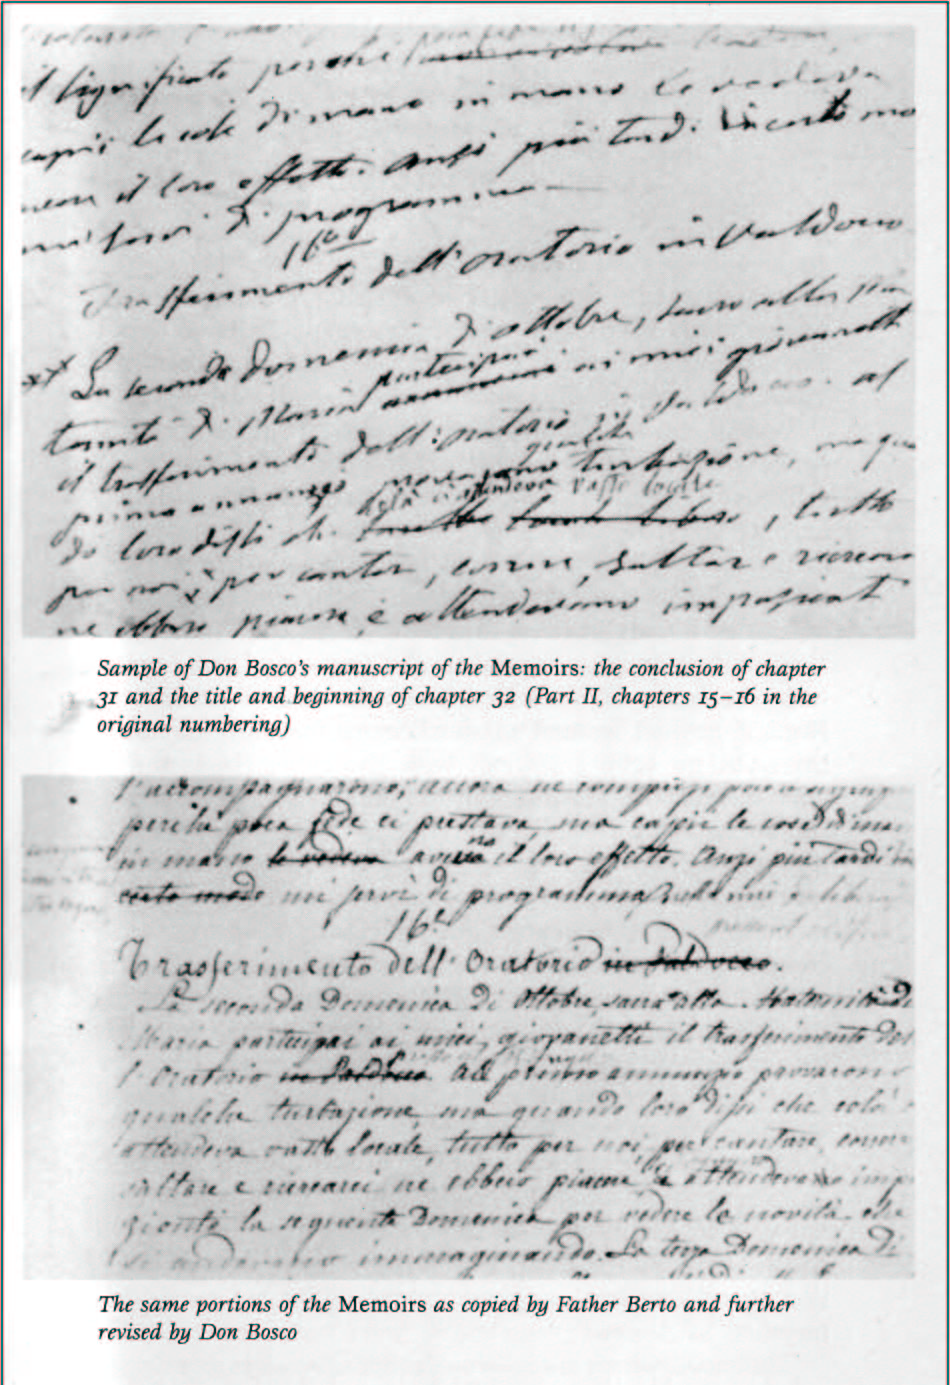 il significato perchè
capii le cose di mano in mano le vedeva
il loro effetto. Anzi più tardi in certo mo
mi servì di programma
16°
Trasferimento dell'oratorio in Valdocco
La seconda domenica di ottobre, sacra alla
ternità di Maria partecipai ai miei giovanetti
il trasferimento dell'oratorio in Valdocco. al
primo annunzio qualche turbazione, ma qua
colà ci attendeva vasto locale
do loro dissi che , tutto
per noi, per cantar, correre, saltar e ricrear
ne ebbero piacere, e attendevamo impazient
Sample of Don Bosco's manuscript of the Memoirs: the conclusion of chapter
31 and the title and beginning of chapter 32 (Part II, chapters 15–16 in the
original numbering)
l'accompagnarono; allora ne compresi poco
perchè poca fede ci prestava, ma capii le cose di man
in mano le vedeva il loro effetto. Anzi più tardi in
certo modo mi servì di programma
16°
Trasferimento dell'Oratorio in Valdocco.
La seconda Domenica di Ottobre sacra alla Maternità di
Maria partecipai ai miei giovanetti il trasferimento del
l'Oratorio in Valdocco Al primo annunzio provarono
qualche turbazione, ma quando loro dissi che colà
attendeva vasto locale, tutto per noi, per cantare, correre
saltare e ricrearci ne ebbero piacere e attendevano impa
zienti la seguente Domenica per vedere le novità che
si andavano immaginando. La terza Domenica di
The same portions of the Memoirs as copied by Father Berto and further
revised by Don Bosco